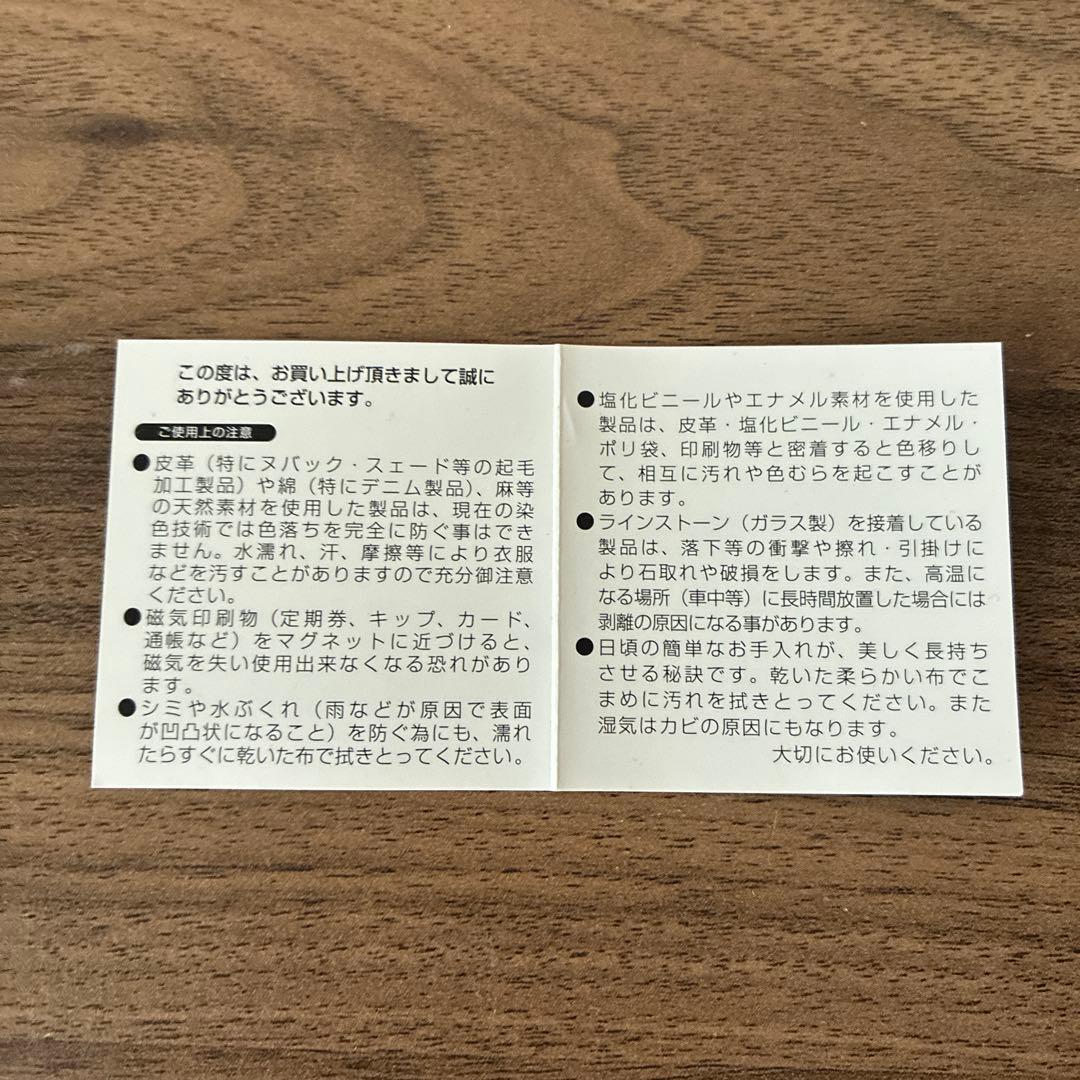 この度は、お買い上げ頂きまして誠に
ありがとうございます。
ご使用上の注意
●皮革（特にヌバック・スェード等の起毛
加工製品）や綿（特にデニム製品）、麻等
の天然素材を使用した製品は、現在の染
色技術では色落ちを完全に防ぐ事はでき
ません。水濡れ、汗、摩擦等により衣服
などを汚すことがありますので充分御注意
ください。
●磁気印刷物（定期券、キップ、カード、
通帳など）をマグネットに近づけると、
磁気を失い使用出来なくなる恐れがあり
ます。
●シミや水ぶくれ（雨などが原因で表面
が凹凸状になること）を防ぐ為にも、濡れ
たらすぐに乾いた布で拭きとってください。
●塩化ビニールやエナメル素材を使用した
製品は、皮革・塩化ビニール・エナメル・
ポリ袋、印刷物等と密着すると色移りし
て、相互に汚れや色むらを起こすことが
あります。
●ラインストーン（ガラス製）を接着している
製品は、落下等の衝撃や擦れ・引掛けに
より石取れや破損をします。また、高温に
なる場所（車中等）に長時間放置した場合には
剥離の原因になる事があります。
●日頃の簡単なお手入れが、美しく長持ち
させる秘訣です。乾いた柔らかい布でこ
まめに汚れを拭きとってください。また
湿気はカビの原因にもなります。
大切にお使いください。